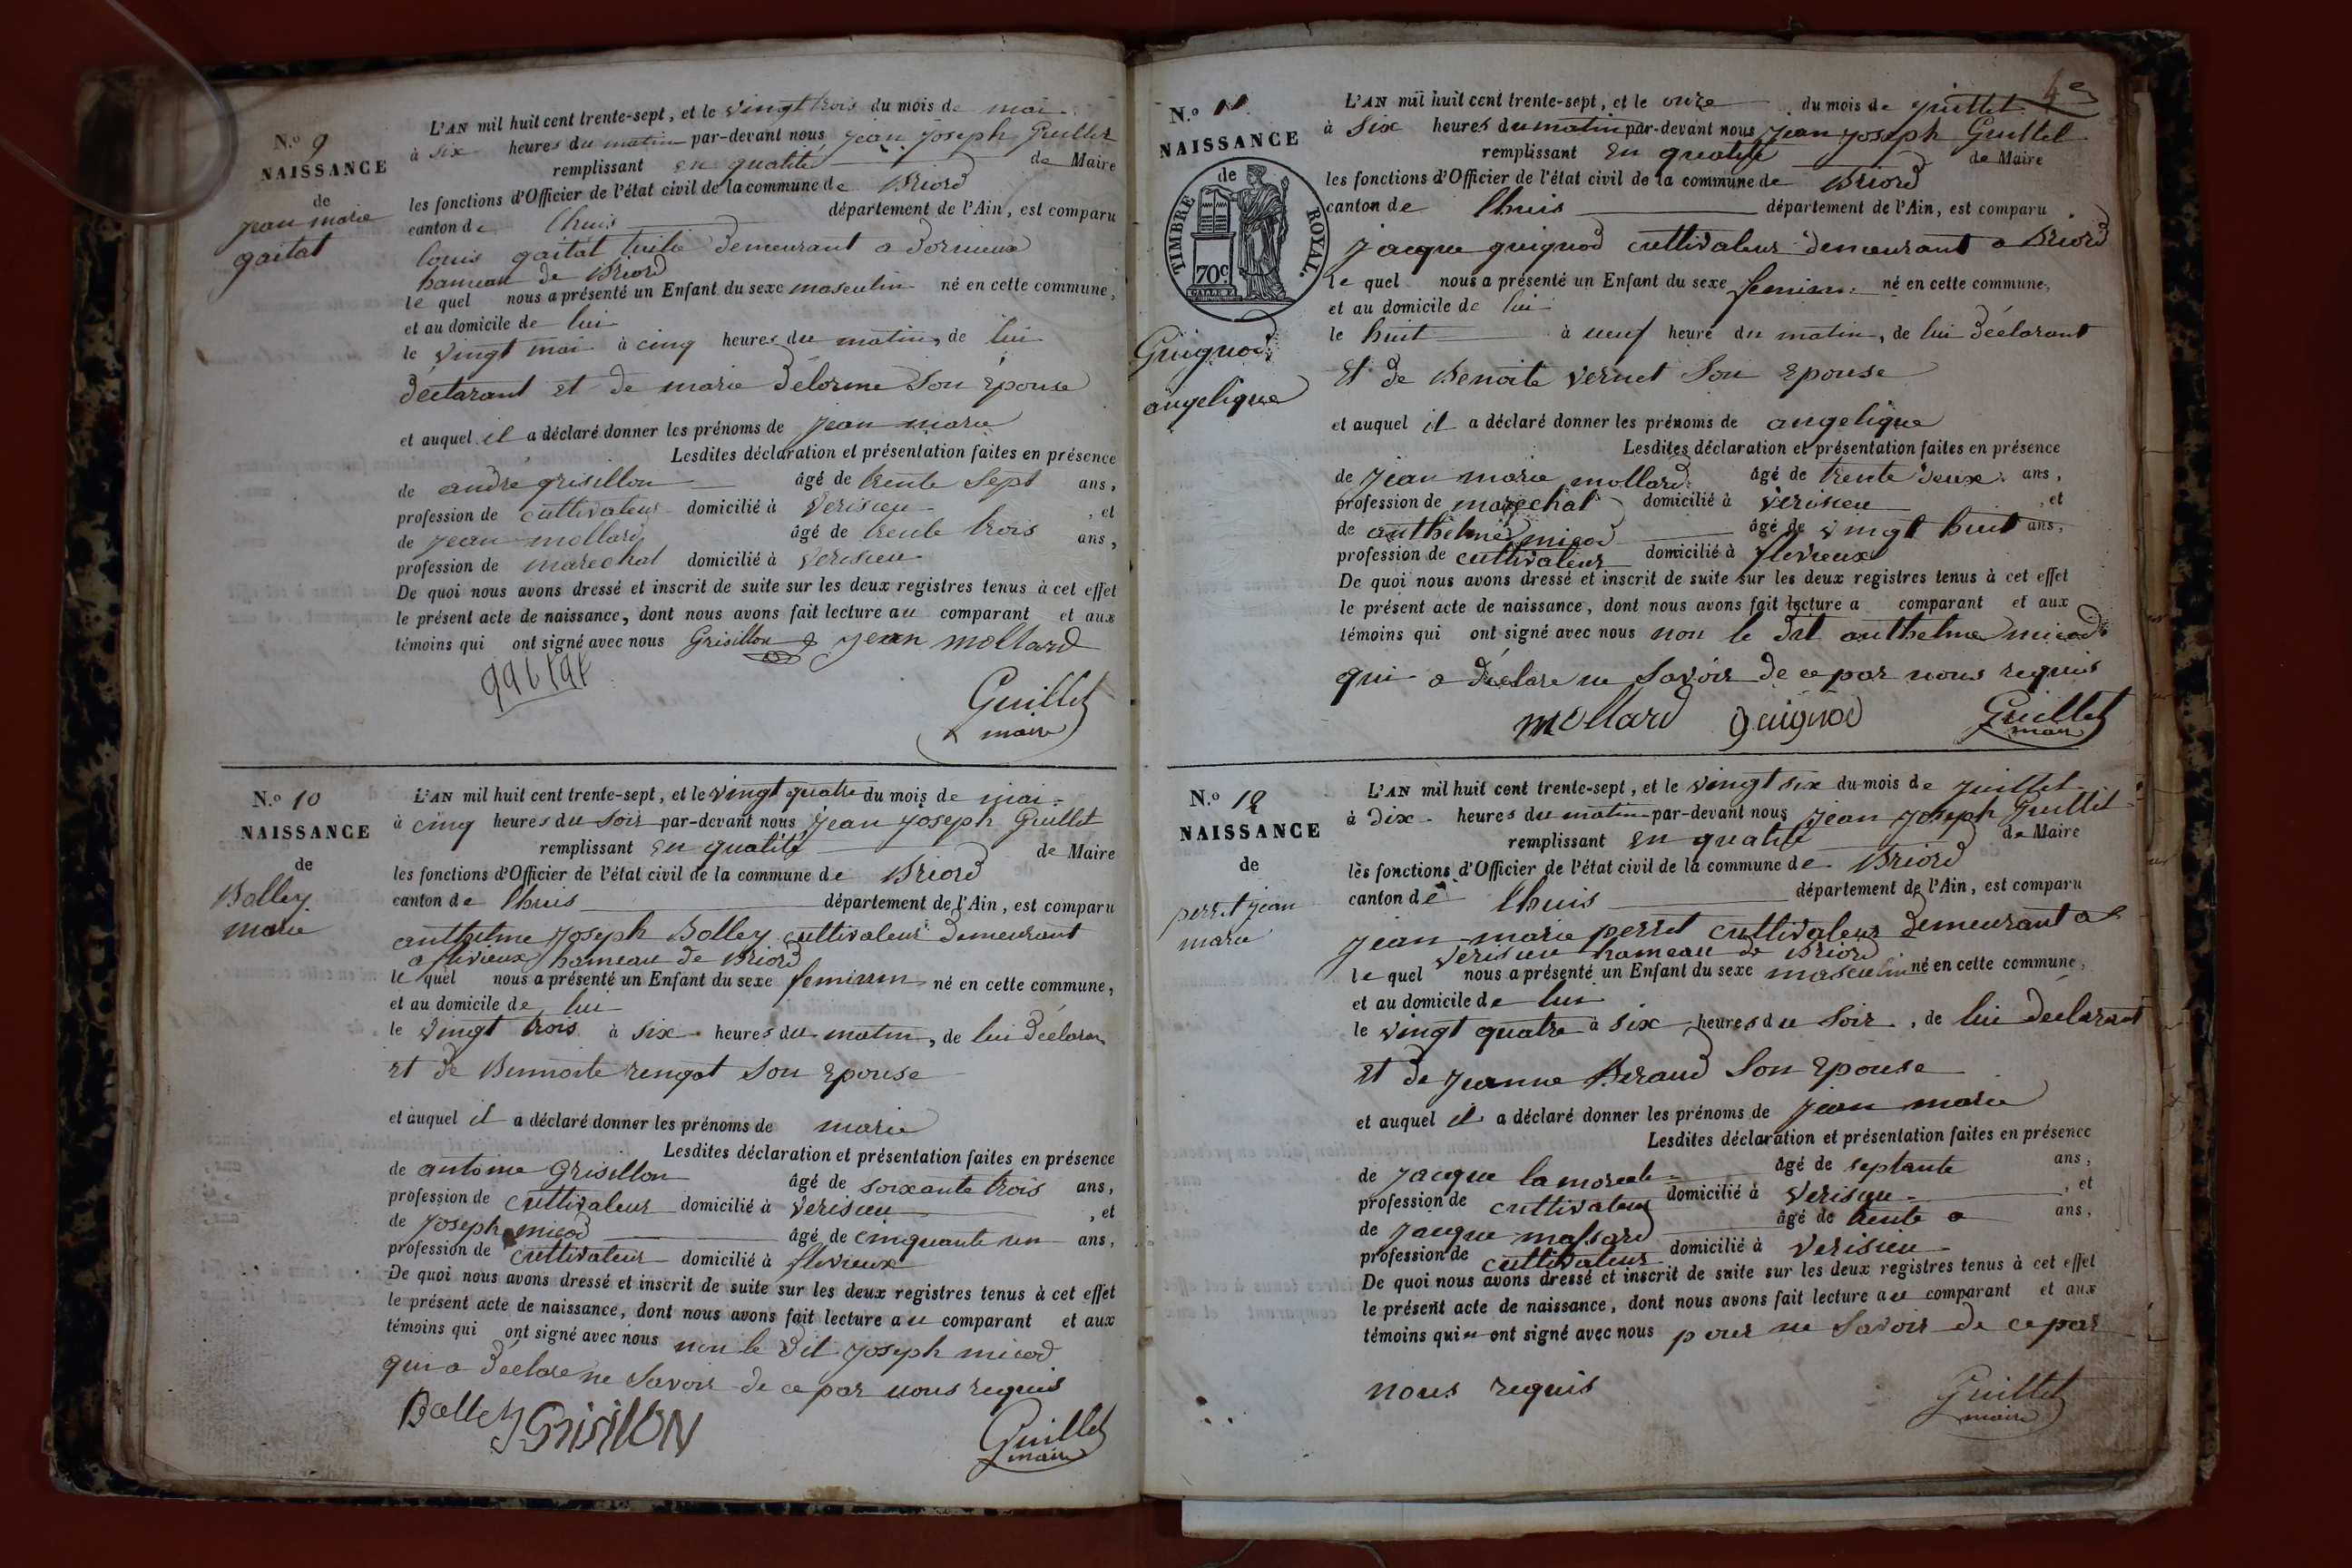 N.o 9
NAISSANCE
de
jean marie
gaitat
L'AN mil huit cent trente-sept, et le vingt trois du mois de mai
à six heures du matin par-devant nous jean joseph Guillet
remplissant en qualité de Maire
les fonctions d'Officier de l'état civil de la commune de Briord
canton de lhuis département de l'Ain, est comparu
louis gaitat demeurant a dornieux
hameau de Briord
le quel nous a présenté un Enfant du sexe masculin né en cette commune,
et au domicile de lui
le vingt mai à cinq heures du matin, de lui
déclarant et de marie délorme son épouse
et auquel il a déclaré donner les prénoms de jean marie
Lesdites déclaration et présentation faites en présence
de andré grisillon âgé de trente sept ans,
profession de cultivateur domicilié à verisieu , et
de jean mollard âgé de trente trois ans,
profession de marechal domicilié à verisieu
De quoi nous avons dressé et inscrit de suite sur les deux registres tenus à cet effet
le présent acte de naissance, dont nous avons fait lecture au comparant et aux
témoins qui ont signé avec nous Grisillon jean mollard
gaitat
Guillet
maire
N.o 10
NAISSANCE
de
Bolley
marie
L'AN mil huit cent trente-sept, et le vingt quatre du mois de mai
à cinq heures du soir par-devant nous jean joseph Guillet
remplissant en qualité de Maire
les fonctions d'Officier de l'état civil de la commune de Briord
canton de lhuis département de l'Ain, est comparu
anthelme joseph Bolley cultivateur demeurant
a flevieux hameau de Briord
le quel nous a présenté un Enfant du sexe feminin né en cette commune,
et au domicile de lui
le vingt trois à six heures du matin, de lui déclaran
et de Bennoite rengot son epouse
et auquel il a déclaré donner les prénoms de marie
Lesdites déclaration et présentation faites en présence
de antoine grisillon âgé de soixante trois ans,
profession de cultivateur domicilié à verisieu , et
de joseph micod âgé de cinquante un ans,
profession de cultivateur domicilié à flevieux
De quoi nous avons dressé et inscrit de suite sur les deux registres tenus à cet effet
le présent acte de naissance, dont nous avons fait lecture au comparant et aux
témoins qui ont signé avec nous non le dit joseph micod
qui a déclare ne savoir de ce par nous requis
Bolley Grisillon
Guillet
maire
4e
N.o 11
NAISSANCE
de
TIMBRE ROYAL.
70c.
Guignod
angelique
L'AN mil huit cent trente-sept, et le onze du mois de juillet
à six heures du matin par-devant nous jean joseph Guillet
remplissant en qualité de Maire
les fonctions d'Officier de l'état civil de la commune de Briord
canton de lhuis département de l'Ain, est comparu
jacque guignod cultivateur demeurant a Briord
le quel nous a présenté un Enfant du sexe feminin né en cette commune,
et au domicile de lui
le huit à neuf heure du matin, de lui déclarant
et de Benoite vernet son epouse
et auquel il a déclaré donner les prénoms de angelique
Lesdites déclaration et présentation faites en présence
de jean marie mollard âgé de trente deux ans,
profession de marechal domicilié à verisieu , et
de anthelme micod âgé de vingt huit ans,
profession de cultivateur domicilié à flevieux
De quoi nous avons dressé et inscrit de suite sur les deux registres tenus à cet effet
le présent acte de naissance, dont nous avons fait lecture a comparant et aux
témoins qui ont signé avec nous non le dit anthelme micod
qui a déclare ne savoir de ce par nous requis
mollard guignod Guillet
maire
N.o 12
NAISSANCE
de
perret jean
marie
L'AN mil huit cent trente-sept, et le vingt six du mois de juillet
à dix heures du matin par-devant nous jean joseph Guillet
remplissant en qualité de Maire
les fonctions d'Officier de l'état civil de la commune de Briord
canton de lhuis département de l'Ain, est comparu
jean marie perret cultivateur demeurant a
verisieu hameau de Briord
le quel nous a présenté un Enfant du sexe masculin né en cette commune,
et au domicile de lui
le vingt quatre à six heures du soir, de lui déclarant
et de jeanne Beraud son epouse
et auquel il a déclaré donner les prénoms de jean marie
Lesdites déclaration et présentation faites en présence
de jacque âgé de septante ans,
profession de cultivateur domicilié à verisieu , et
de jacque massard âgé de trente a ans,
profession de cultivateur domicilié à verisieu
De quoi nous avons dressé et inscrit de suite sur les deux registres tenus à cet effet
le présent acte de naissance, dont nous avons fait lecture au comparant et aux
témoins qui n ont signé avec nous pour ne savoir de ce par
nous requis
Guillet
maire